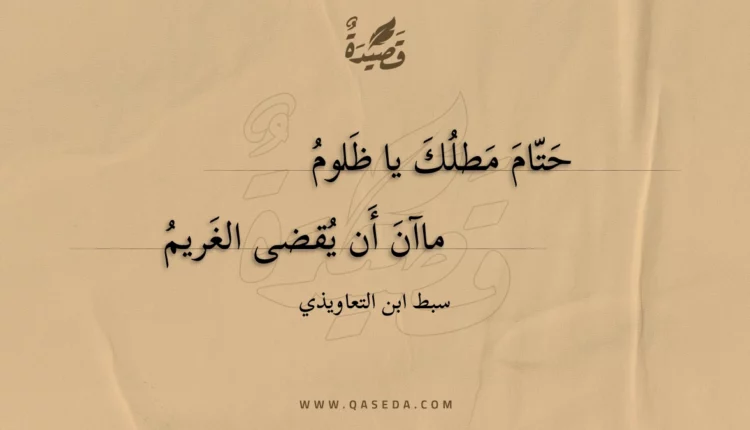 قَصِيْدَةٌ
حَتّامَ مَطلُكَ يا ظَلومُ
ماآنَ أَن يُقضى الغَريمُ
سبط ابن التعاويذي
WWW.QASEDA.COM